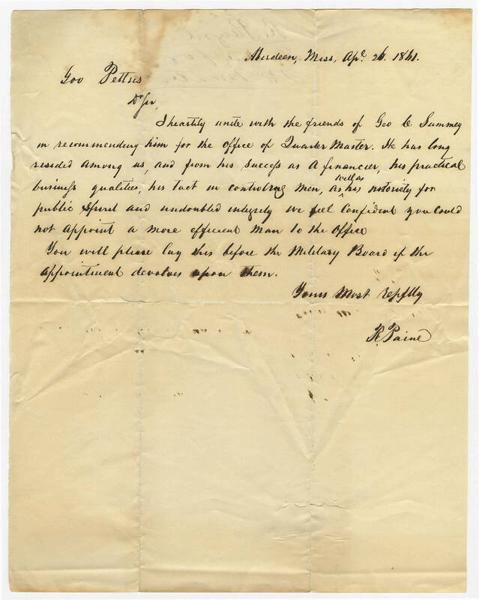 Aberdeen, Miss, Apl 26. 1861.
Gov Pettus
Dr Sir,
I heartily unite with the friends of Geo C. Summey
in recommending him for the office of Quarter Master. He has long
resided among us, and from his success as a financier, his practical
business qualities, his tact in controling men, as well as his notority for
public spirit and undoubted integrity we feel confident you could
not appoint a more efficient man to the office
You will please lay this before the Military Board if the
appointment devolves upon them.
Yours Most respflly
R. Paine